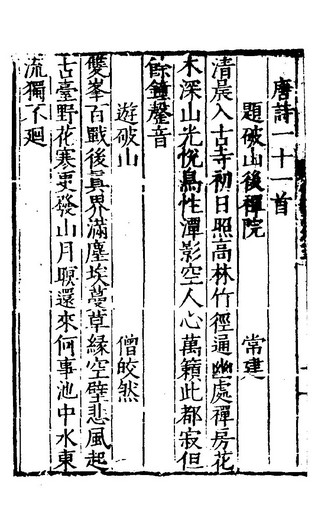 唐詩一十一首
題破山後禪院 常建
清晨入古寺初日照高林竹徑通幽處禪房花
木深山光悅鳥性潭影空人心萬籟此都寂但
餘鐘磬音
遊破山 僧皎然
雙峯百戰後眞界滿塵埃蔓草緣空壁悲風起
古臺野花寒更發山月暝還來何事池中水東
流獨不廻